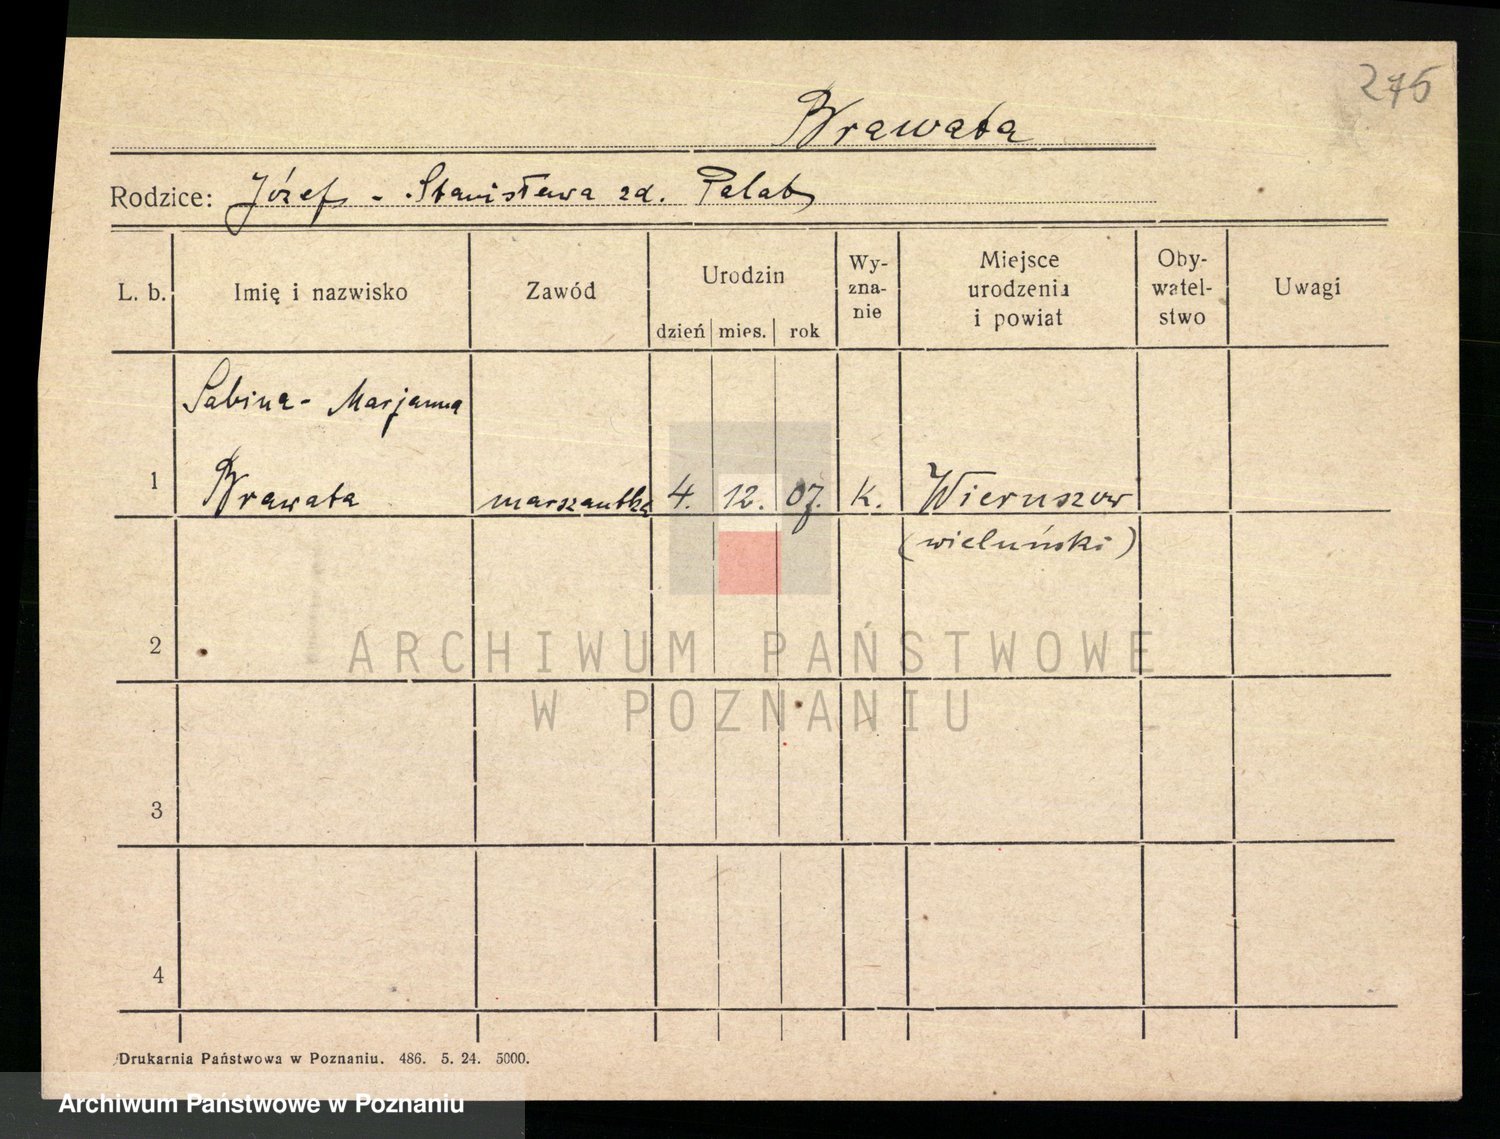 275
Brawata
Rodzice: Józef - Stanisława zd. Palat
L. b. Imię i nazwisko Zawód Urodzin dzień mies. rok Wy-zna-nie Miejsce urodzenia i powiat Oby-watel-stwo Uwagi
Sabina - Marjanna
1 Brawata 4. 12. 07. k. Wieruszow
(wieluński)
2
ARCHIWUM PAŃSTWOWE
W POZNANIU
3
4
Drukarnia Państwowa w Poznaniu. 486. 5. 24. 5000.
Archiwum Państwowe w Poznaniu